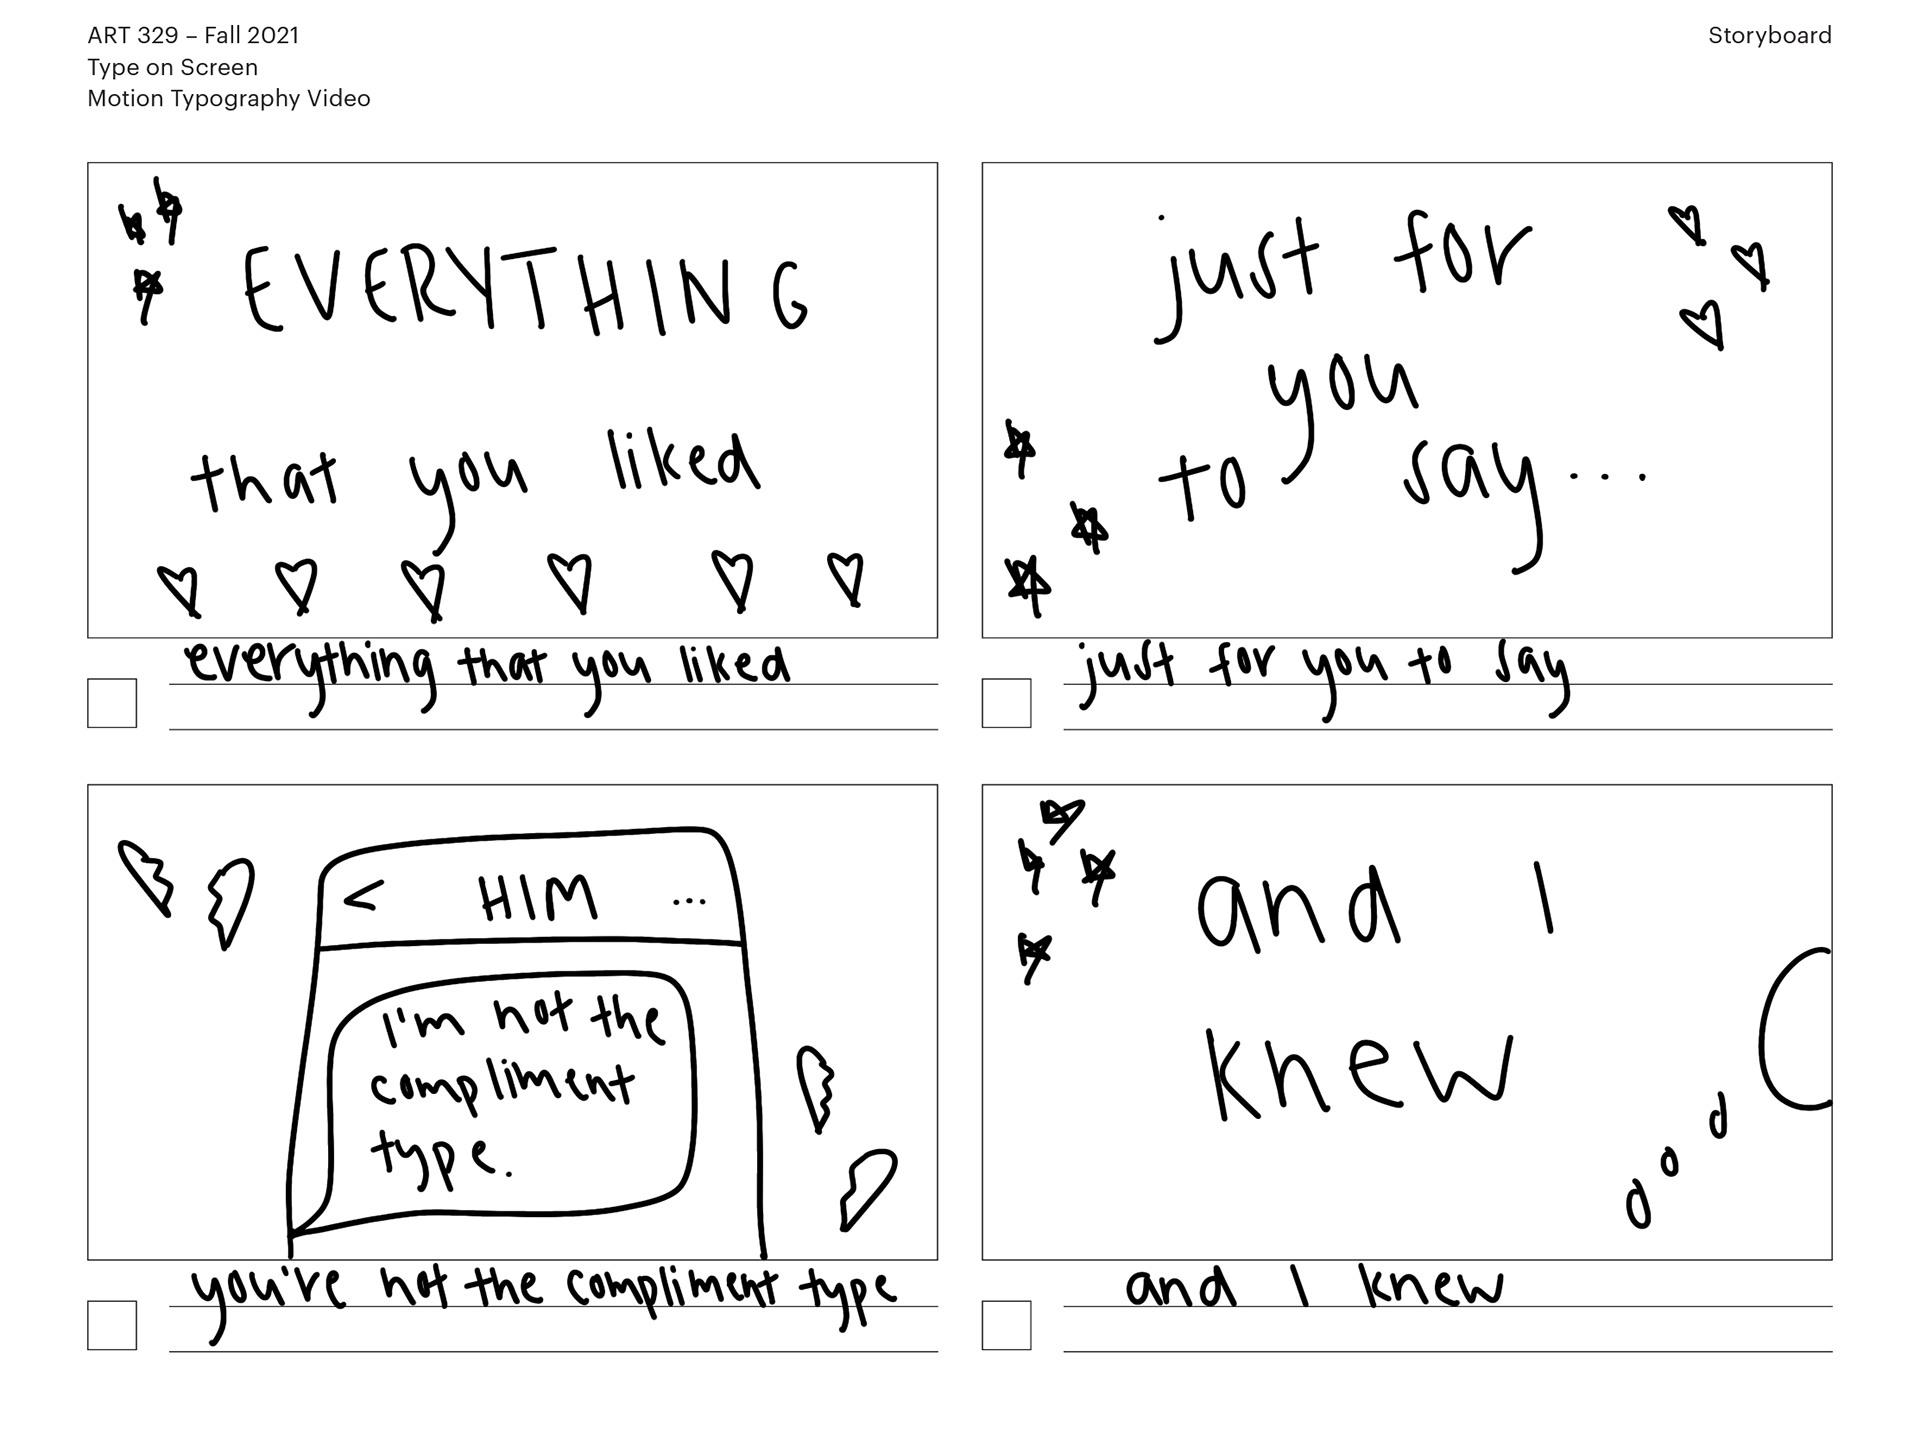 ART 329 – Fall 2021
Type on Screen
Motion Typography Video
Storyboard
EVERYTHING
that you liked
everything that you liked
just for
you
to say...
just for you to say
< HIM ...
I'm not the
compliment
type.
you're not the compliment type
and I
knew
and I knew